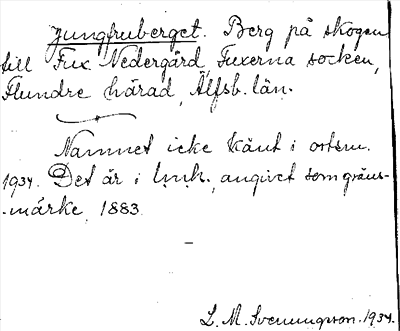 Jungfruberget. Berg på skogen
till Fux Nedergård, Fuxerna socken,
Flundre härad, Älfsb. län.
Namnet icke känt i ortsn.
1934. Det är i l.m.k., angivet som gräns-
-märke, 1883.
L. M. Svenungsson. 1934.